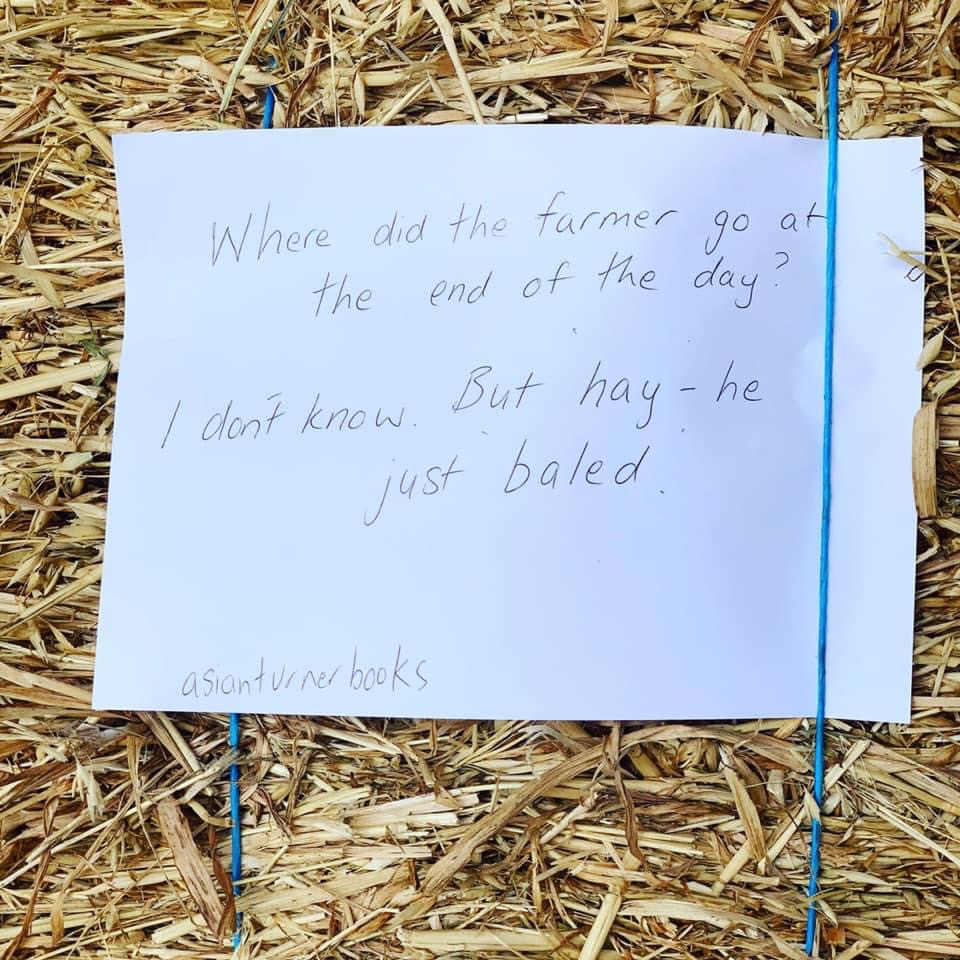 Where did the farmer go at
the end of the day?
I don't know. But hay - he
just baled.
asianturnerbooks